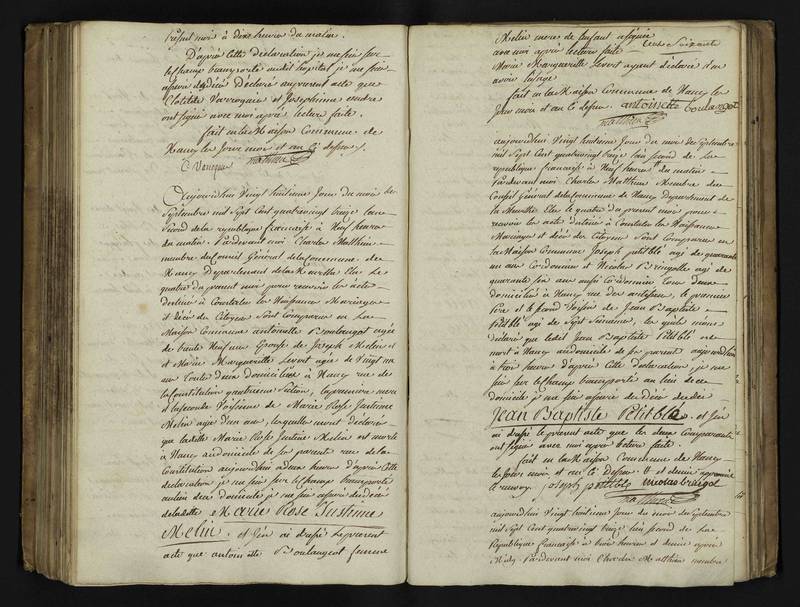 présent mois à dix heures du matin.
D'après cette déclaration je me suis sur-
lechamp transporté audit hopital, je me suis
assuré du décès déclaré au présent acte que
Clotilde Varroquier et Josephinne
ont signé avec moi après lecture faite.
fait en la Maison Commune de
Nancy les jour mois et an ci dessus.
matthieu
Aujourdhui vingt huitieme jour du mois de
Septembre mil Sept Cent quatrevingt treize l'an
Second de la république francaise à neuf heures
du matin. Pardevant moi Charles Matthieu
membre du Conseil Général de la Commune de
Nancy Département de la Meurthe Elu le
quatre du présent mois pour recevoir les actes
destinés à Constater les Naissances Mariages
et décès des Citoyens Sont Comparues en la
Maison Commune antoinette Boulangot agée
de trente neuf ans Epouse de Joseph Melin et
et Marie Margueritte Levert agée de vingt un
ans toutes deux domiciliées à Nancy rue de
la Constitution quatrieme Section, la premiere mere
et la seconde Voisine de Marie Rose Justinne
Melin agée d'un an, lesquelles m'ont déclaré
que ladite Marie Rose Justine Melin est morte
à Nancy au domicile de ses parents rue de la
Constitution aujourdhui à deux heures d'après Cette
déclaration je me suis sur lechamp transporté
au lieu dudit domicile je me suis assuré du décès
de ladite Marie Rose Justinne
Melin. et j'en ai dressé le présent
acte que antoinette Boulangot femme
Melin mere de l'enfant a signé
avec moi après lecture faite
Marie Margueritte Levert ayant déclaré n'en
avoir l'usage
fait en la Maison Commune de Nancy les
jour mois et an ci dessus. antoinette boulangot
matthieu
aujourdhui vingt huitieme jour du mois de Septembre
mil Sept Cent quatrevingt treize l'an second de la
république francaise à neuf heures du matin
Pardevant moi Charles Matthieu Membre du
Conseil Général de la Commune de Nancy Département de
la Meurthe Elu le quatre du présent mois pour
recevoir les actes destinés à Constater les Naissances
Mariages et décès des Citoyens Sont Comparus en
la Maison Commune Joseph petitblé agé de quarante
un ans Cordonnier et Nicolas agé de
quarante six ans aussi Cordonnier tous deux
domiciliés à Nancy rue des, le premier
Pere et le second Voisin de Jean Baptiste
Petitblé agé de Sept Semaines, lesquels m'ont
déclaré que ledit Jean Baptiste Petitblé est
mort à Nancy au domicile de ses parents aujourdhui
à trois heures d'après Cette déclaration, je me
suis sur lechamp transporté au lieu de ce
domicile je me suis assuré du décès dudit
Jean Baptiste Petitblé. et j'en
ai dressé le présent acte que les deux Comparants
ont signé avec moi après lecture faite.
fait en la Maison Commune de Nancy
les jour mois et an ci dessus.
joseph petitblé nicolas
matthieu
aujourdhui vingt huitieme jour du mois de Septembre
mil Sept Cent quatrevingt treize l'an second de la
République francaise à trois heures et demie après
Midy. Pardevant moi Charles Matthieu membre